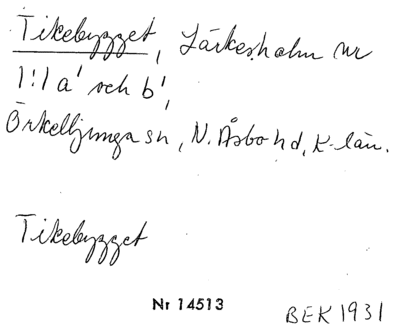 Tikebygget, Lärkesholm nr
1:1 a' och b',
Örkelljunga sn, N. Åsbo hd, K-län.
Tikebygget
Nr 14513
BEK 1931